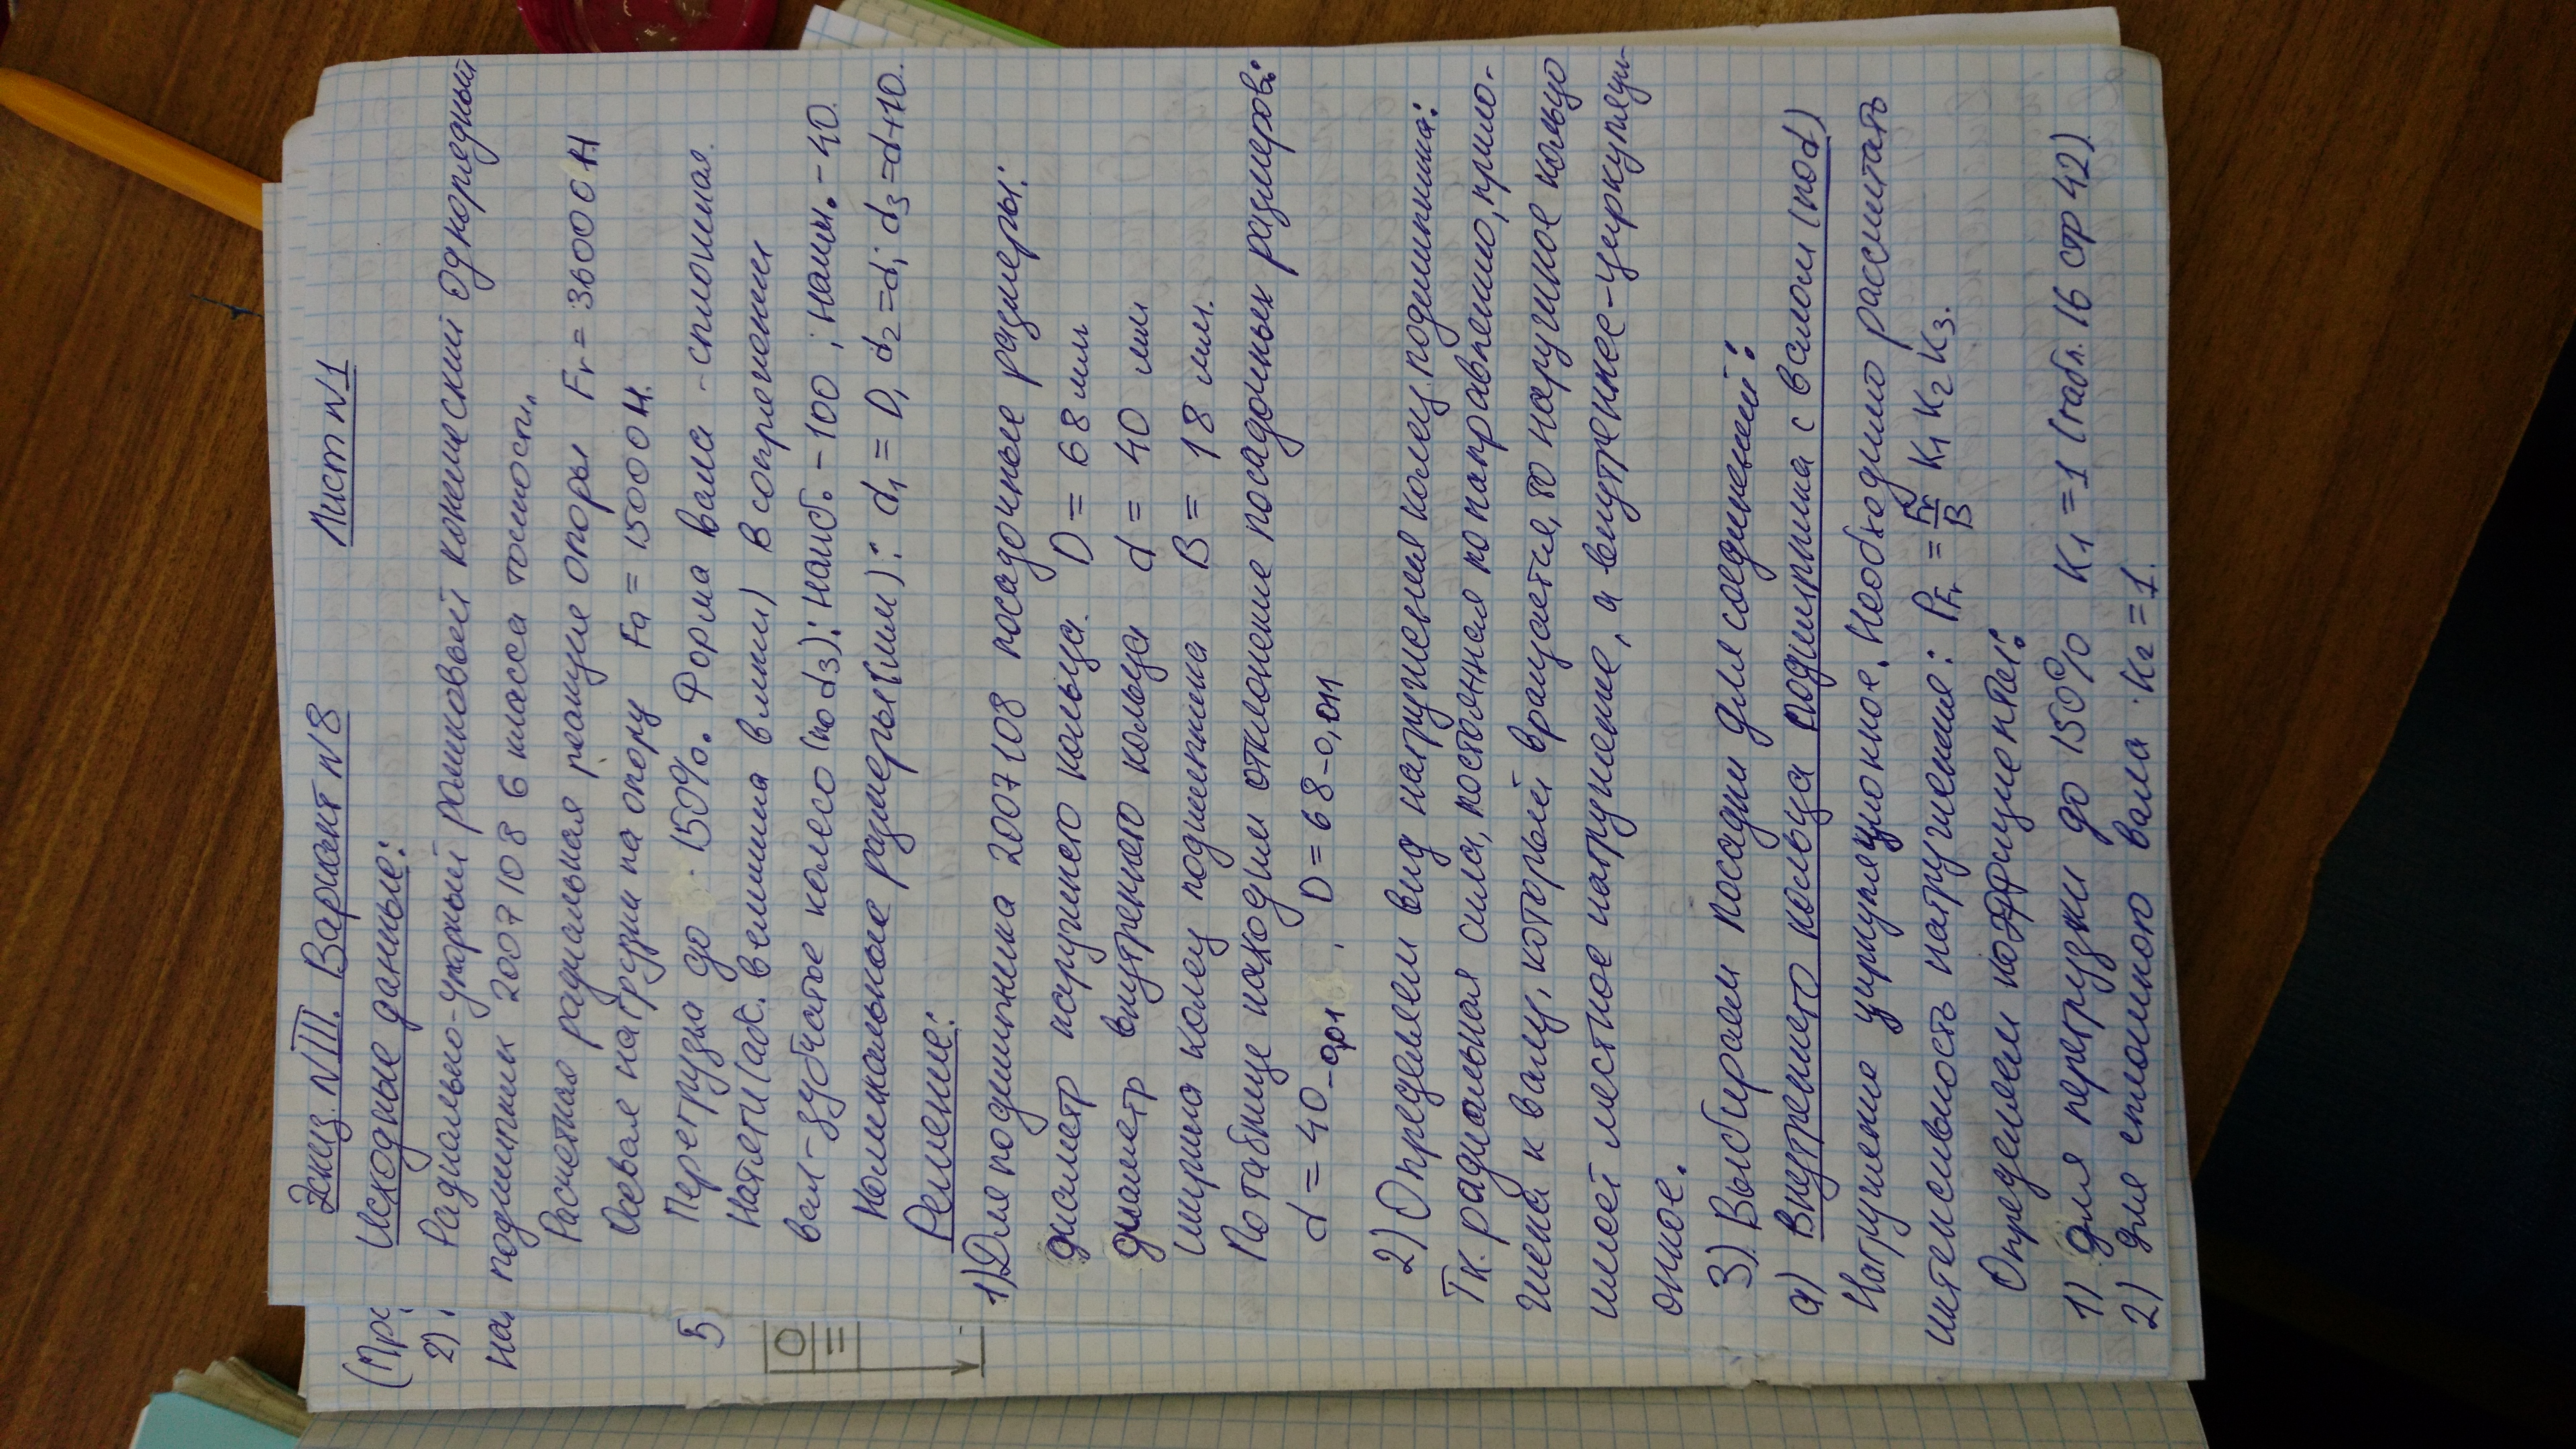 Эскиз. N III. Вариант N8 Лист N1
Исходные данные:
Радиально-упорный роликовый конический однорядный
подшипник 2007108 6 класса точности.
Расчетная радиальная реакция опоры Fr = 36000 Н
Осевая нагрузки на опору Fa = 15000 Н.
Перегрузка до 150%. Форма вала - сплошная.
Натяги (абс. величина в мкм) в сопряжении
вал-зубчатое колесо (по d3): наиб. - 100 ; наим. - 40.
Номинальные размеры (мм): d1 = D, d2 = d; d3 = d+10.
Решение:
1) Для подшипника 2007108 посадочные размеры:
диаметр наружного кольца. D = 68 мм
диаметр внутреннего кольца d = 40 мм
ширина колец подшипника B = 18 мм.
По таблице находим отклонение посадочных размеров:
d = 40 -0,01 , D = 68 -0,011
2) Определяем вид нагружения колец подшипника:
Т.к. радиальная сила, постоянная по направлению, прило-
жена к валу, который вращается, то наружное кольцо
имеет местное нагружение, а внутреннее - циркуляци-
онное.
3). Выбираем посадки для соединений:
а) внутреннего кольца подшипника с валом (по d)
Нагружение циркуляционное. Необходимо рассчитать
интенсивность нагружения: PFr = Fr/B K1 K2 K3.
Определяем коэффициенты:
1) для перегрузки до 150% K1 = 1 (табл. 16 стр 42).
2) для сплошного вала K2 = 1.
(Пр
2)
на
5